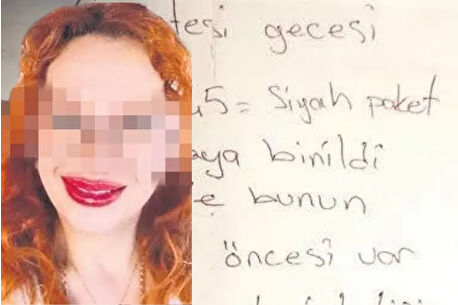 tesi gecesi
45= Siyah paket
aya binildi
e bunun
öncesi var